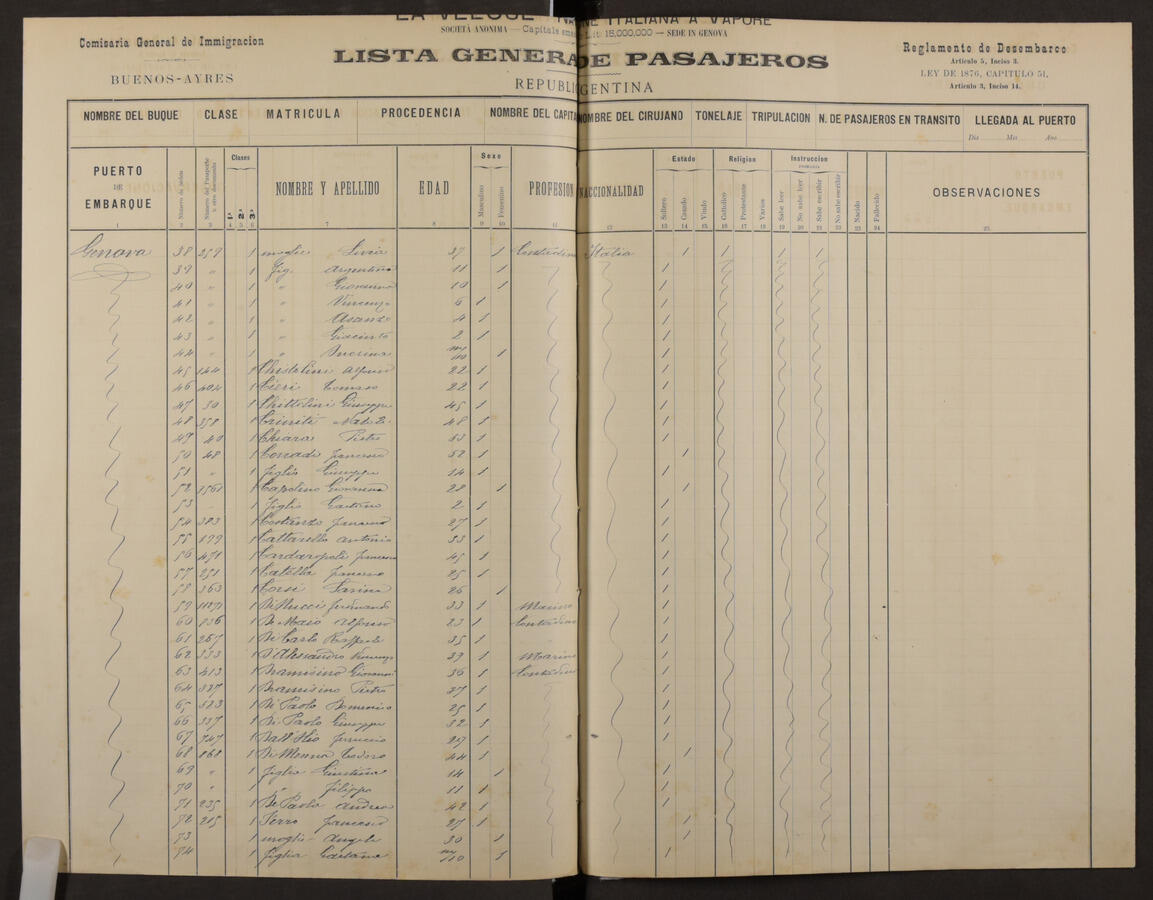 LA VELOCE NA NE ITALIANA A VAPORE
SOCIETÀ ANONIMA — Capitale ema Lit. 15,000,000 — SEDE IN GENOVA
Comisaria General de Immigracion
BUENOS-AYRES
LISTA GENERA DE PASAJEROS
REPUBLI GENTINA
Reglamento de Desembarco
Articulo 5, Inciso 3.
LEY DE 1876, CAPITULO 51,
Articulo 3, Inciso 14.
NOMBRE DEL BUQUE CLASE MATRICULA PROCEDENCIA NOMBRE DEL CAPITA NOMBRE DEL CIRUJANO TONELAJE TRIPULACION N. DE PASAJEROS EN TRANSITO LLEGADA AL PUERTO
Dia Mes Año
PUERTO DE EMBARQUE Número del Pasaporte Clases 1ª 2ª 3ª NOMBRE Y APELLIDO EDAD Sexo Masculino Femenino PROFESION NACCIONALIDAD Estado Soltero Casado Viudo Religion Catolico Protestante Varios Instruccion Sabe leer No sabe leer Sabe escribir No sabe escribir Nacido Fallecido OBSERVACIONES
1 2 3 4 5 6 7 8 9 10 11 12 13 14 15 16 17 18 19 20 21 22 23 24 25
Genova 38 259 1 moglie Livia 37 1 Contadina Italia 1 1 1 1
39 " 1 fig. Argentina 11 1 1
40 " 1 " Giovanna 10 1 1
41 " 1 " Vincenzo 6 1 1
42 " 1 " 4 1 1
43 " 1 " Giacinto 2 1 1
44 " 1 " 1 1
45 144 1 22 1 1
46 404 1 Cieri Tomaso 22 1 1
47 30 1 Chittolini Giuseppe 45 1 1
48 358 1 Criniti Natale 48 1 1
49 40 1 Chiara Pietro 53 1 1
50 48 1 Corradi Francesco 52 1 1
51 " 1 figlio Giuseppe 14 1 1
52 1 Capolino Giovanna 28 1 1
53 " 1 figlio Gaetano 2 1 1
54 383 1 Costanzo 27 1 1
55 179 1 Cattarello Antonio 33 1 1
56 471 1 Cardaropoli Francesco 45 1 1
57 251 1 Catella Francesco 25 1 1
58 363 1 Corsi 26 1 1
59 1 Di Nucci Ferdinando 33 1 Marino 1
60 836 1 De Maio Alfonso 23 1 Contadino 1
61 267 1 Di Carlo Raffaele 35 1 " 1
62 333 1 D'Alessandro Vincenzo 39 1 Marino 1
63 413 1 Bramisino Giovanni 36 1 Contadino 1
64 337 1 Bramisino Pietro 37 1 1
65 523 1 Di Paolo Domenico 25 1 1
66 337 1 Di Paolo Giuseppe 32 1 1
67 747 1 Dall'Olio 27 1 1
68 868 1 Di Menna Teodoro 44 1 1
69 " 1 figlia Giustina 14 1 1
70 " 1 " Filippo 11 1 1
71 235 1 De Paola Andrea 42 1 1
72 215 1 Ferro Francesco 27 1 1
73 1 moglie Angela 30 1 1
74 1 figlia Gaetana 1 1